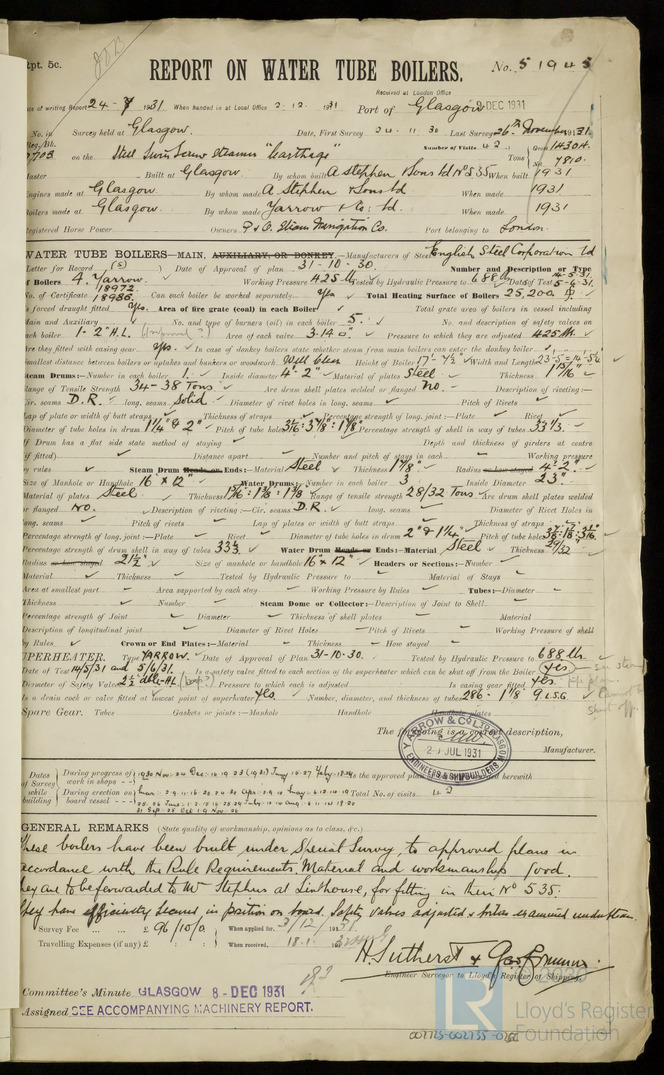 Rpt. 5c.
REPORT ON WATER TUBE BOILERS.
No. 51945
Received at London Office
9 DEC 1931
Date of writing Report 24-7 1931 When handed in at Local Office 2.12.1931 Port of Glasgow
No. in Survey held at Glasgow. Date, First Survey 24.11.30 Last Survey 26th November 1931
Reg. Bk. Number of Visits 42
on the Steel Twin Screw Steamer "Carthage" Tons Gross 14304 Net 7810.
Master Built at Glasgow By whom built A Stephen & Sons Ld No 535 When built 1931
Engines made at Glasgow By whom made A. Stephen & Sons Ld When made 1931
Boilers made at Glasgow By whom made Yarrow & Co: Ld. When made 1931
Registered Horse Power Owners P & O. Steam Navigation Co. Port belonging to London
WATER TUBE BOILERS—MAIN, AUXILIARY, OR DONKEY.—Manufacturers of Steel English Steel Corporation Ld
Letter for Record (S) Date of Approval of plan 31-10-30. Number and Description or Type
of Boilers 4 Yarrow Working Pressure 425 lb Tested by Hydraulic Pressure to 688 lb Date of Test 14-5-31. 5-6-31.
No. of Certificate 18972 18986 Can each boiler be worked separately yes Total Heating Surface of Boilers 25,200
Is forced draught fitted yes. Area of fire grate (coal) in each Boiler Total grate area of boilers in vessel including
Main and Auxiliary No. and type of burners (oil) in each boiler 5. No. and description of safety valves on
each boiler 1-2" H.L. Area of each valve 3.14 Pressure to which they are adjusted 425 lb.
Are they fitted with easing gear yes. In case of donkey boilers state whether steam from main boilers can enter the donkey boiler
Smallest distance between boilers or uptakes and bunkers or woodwork Well clear Height of Boiler 17'-7½" Width and Length
Steam Drums:—Number in each boiler 1. Inside diameter 4'-2" Material of plates Steel Thickness
Range of Tensile Strength 34-38 Tons Are drum shell plates welded or flanged No. Description of riveting:—
Cir. seams D.R. long. seams Solid Diameter of rivet holes in long. seams Pitch of Rivets
Lap of plate or width of butt straps Thickness of straps Percentage strength of long. joint:—Plate Rivet
Diameter of tube holes in drum 1¼" & 2" Pitch of tube holes Percentage strength of shell in way of tubes 33⅓.
If Drum has a flat side state method of staying Depth and thickness of girders at centre
(if fitted) Distance apart Number and pitch of stays in each Working pressure
by rules Steam Drum Heads or Ends:—Material Steel Thickness 1⅛" Radius or how stayed 4'-2"
Size of Manhole or Handhole 16" × 12" Water Drums:—Number in each boiler 3 Inside Diameter 23".
Material of plates Steel Thickness Range of tensile strength 28/32 Tons Are drum shell plates welded
or flanged No. Description of riveting:—Cir. seams D.R. long. seams Diameter of Rivet Holes in
long. seams Pitch of rivets Lap of plates or width of butt straps Thickness of straps
Percentage strength of long. joint:—Plate Rivet Diameter of tube holes in drum 2" & 1¼" Pitch of tube holes
Percentage strength of drum shell in way of tubes 33⅓ Water Drum Heads or Ends:—Material Steel Thickness 29/32
Radius or how stayed Size of manhole or handhole 16" × 12" Headers or Sections:—Number
Material Thickness Tested by Hydraulic Pressure to Material of Stays
Area at smallest part Area supported by each stay Working Pressure by Rules Tubes:—Diameter
Thickness Number Steam Dome or Collector:—Description of Joint to Shell
Percentage strength of Joint Diameter Thickness of shell plates Material
Description of longitudinal joint Diameter of Rivet Holes Pitch of Rivets Working Pressure of shell
by Rules Crown or End Plates:—Material Thickness How stayed
SUPERHEATER. Type YARROW. Date of Approval of Plan 31-10-30. Tested by Hydraulic Pressure to 688 lb.
Date of Test 14/5/31 and 5/6/31. Is a safety valve fitted to each section of the superheater which can be shut off from the Boiler Yes
Diameter of Safety Valve Pressure to which each is adjusted Is easing gear fitted Yes.
Is a drain cock or valve fitted at lowest point of superheater Yes Number, diameter, and thickness of tubes 286: 1⅛ 9 L.S.G
Cannot be shut off.
Spare Gear. Tubes Gaskets or joints:—Manhole Handhole Handhole plates
The foregoing is a correct description,
YARROW & CO. LTD. GLASGOW
JUL 1931
ENGINEERS & SHIPBUILDERS
Manufacturer.
Dates of Survey while building
During progress of work in shops
During erection on board vessel
Total No. of visits 42
GENERAL REMARKS (State quality of workmanship, opinions as to class, &c.)
These boilers have been built under Special Survey, to approved plans in
accordance with the Rule Requirements, Material and workmanship Good.
They are to be forwarded to Mr Stephens at Linthouse, for fitting in their No 535.
They have efficiently secured in position on board. Safety valves adjusted & boiler examined under steam.
Survey Fee £ 96/10/0 When applied for, 3/12/1931
Travelling Expenses (if any) £ When received, 18.1
H. Sutherst &
Engineer Surveyor to Lloyd's Register of Shipping.
Committee's Minute GLASGOW 8-DEC 1931
Assigned SEE ACCOMPANYING MACHINERY REPORT.
© 2020
LR
Lloyd's Register
Foundation